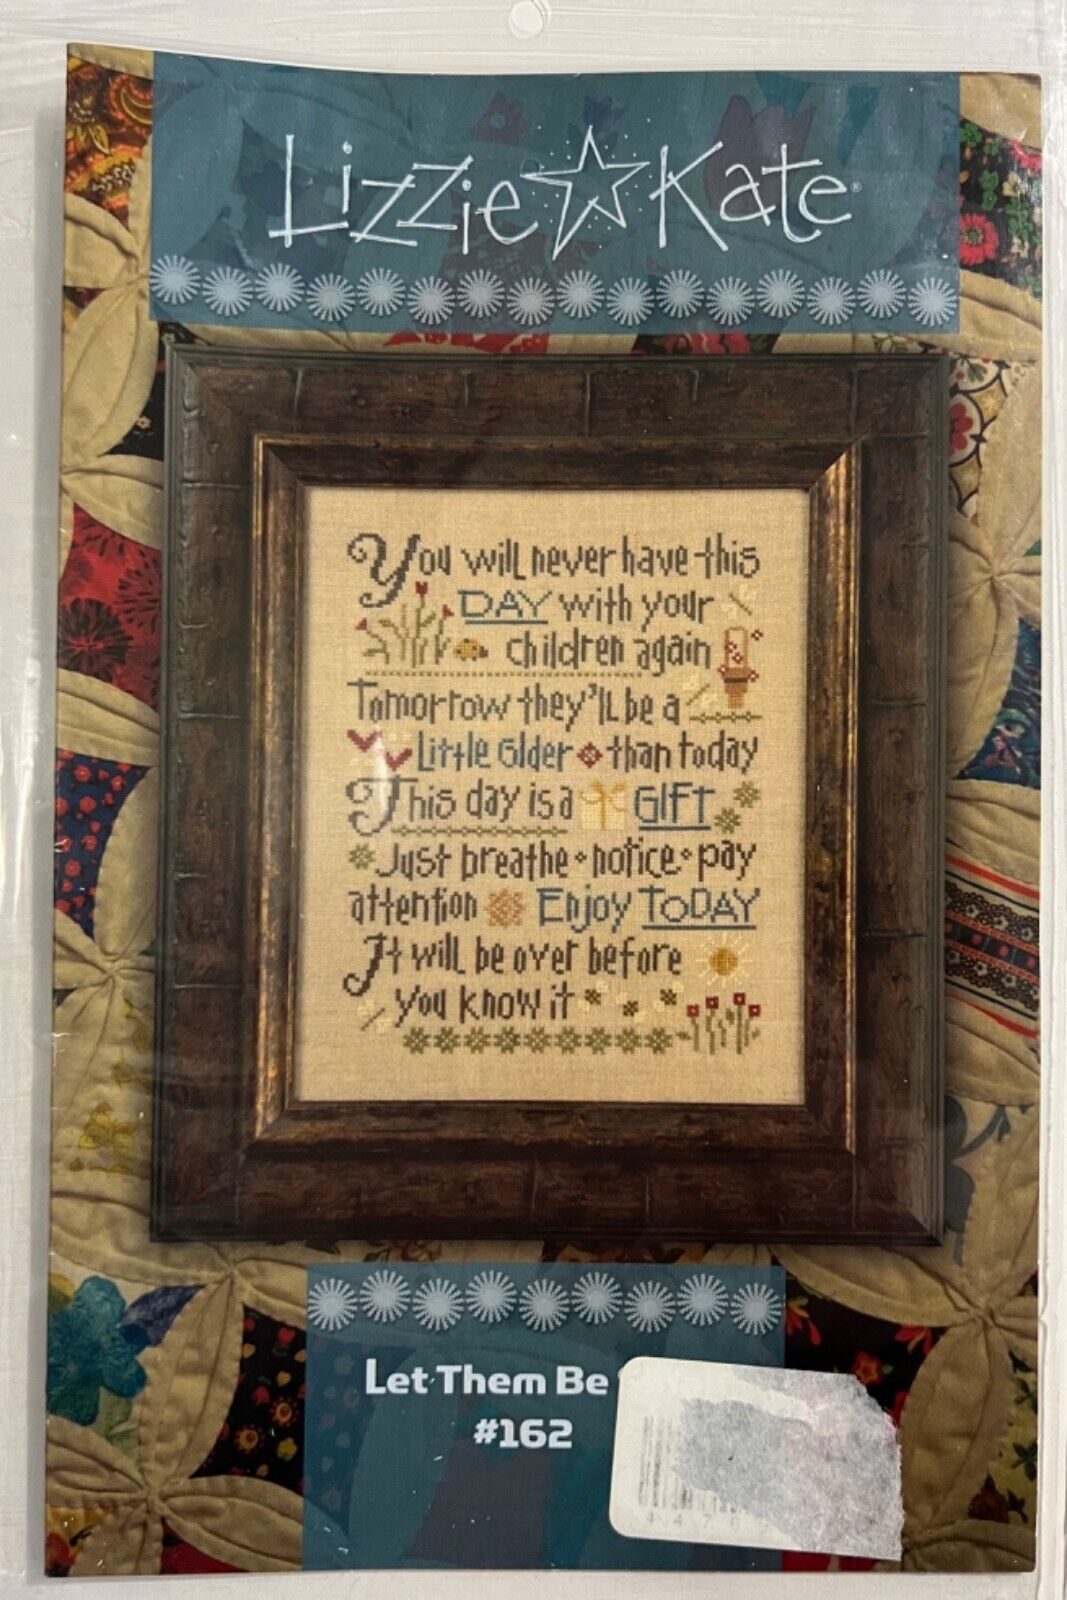 Lizzie Kate®
You will never have this
DAY with your
children again
Tomorrow they'll be a
Little Older than today
This day is a GIFT
Just breathe • notice • pay
attention Enjoy TODAY
It will be over before
you know it
Let Them Be
#162